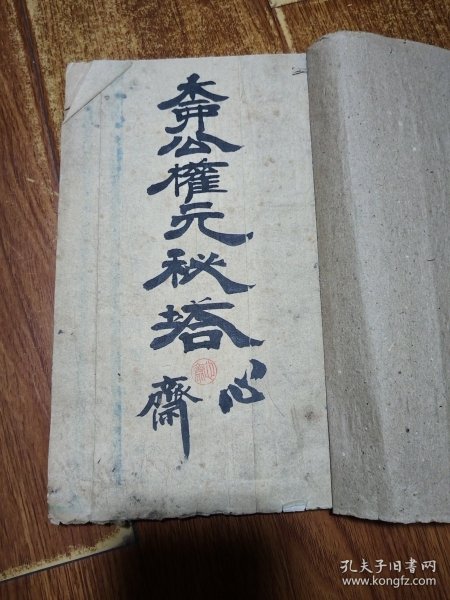 柳公權元秘塔
心
齋
孔夫子旧书网
www.kongfz.com